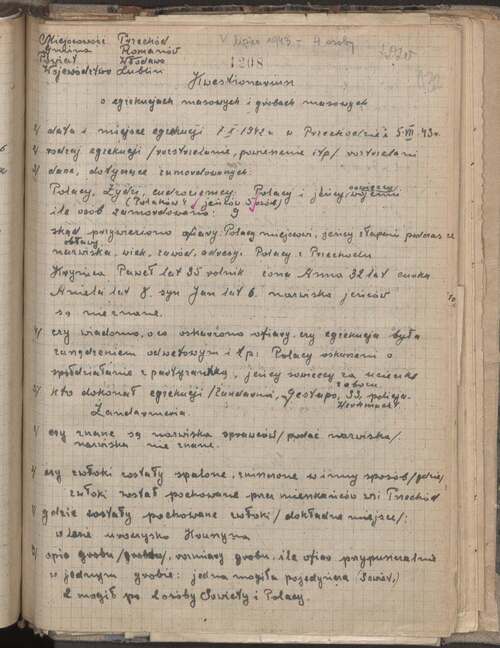 Miejscowość Przechód V lipiec 1943 - 4 osoby
Gmina Romanów
Powiat Włodawa 1208
Województwo Lublin
Kwestionariusz
o egzekucjach masowych i grobach masowych
1/ data i miejsce egzekucji 7 X 1942 r w Przechodzie i 5 VII 43 r.
2/ rodzaj egzekucji /rozstrzelanie, powieszenie itp/ rozstrzelani
3/ dane, dotyczące zamordowanych:
Polacy, Żydzi, cudzoziemcy: Polacy i jeńcy sowieccy wojenni
(Polaków 4 jeńców 5 osób)
ile osób zamordowano: 9
skąd przywieziono ofiary: Polacy miejscowi, jeńcy złapani podczas
obławy
nazwiska, wiek, zawód, adresy: Polacy z Przechodu
Paweł lat 35 rolnik żona Anna 32 lat córka
Aniela lat 8. syn Jan lat 6. nazwiska jeńców
są nieznane.
4/ czy wiadomo, o co oskarżono ofiary, czy egzekucja była
zarządzeniem odwetowym i t.p: Polacy oskarżeni o
współdziałanie z partyzantką, jeńcy sowieccy za ucieczkę
z obozu
5/ kto dokonał egzekucji /Żandarmi, Gestapo, SS. policja
Wehrmacht
Żandarmeria.
6/ czy znane są nazwiska sprawców /podać nazwiska/
nazwiska nie znane.
7/ czy zwłoki zostały spalone, zniszczone w inny sposób /gdzie/
zwłoki zostały pochowane przez mieszkańców wsi Przechód
8/ gdzie zostały pochowane zwłoki /dokładne miejsce/:
w lesie uroczysko
9/ opis grobu /grobów/, rozmiary grobu, ile ofiar przypuszczalnie
w jednym grobie: jedna mogiła pojedyńcza (Sowiet.)
2 mogił po 4 osoby Sowiety i Polacy.